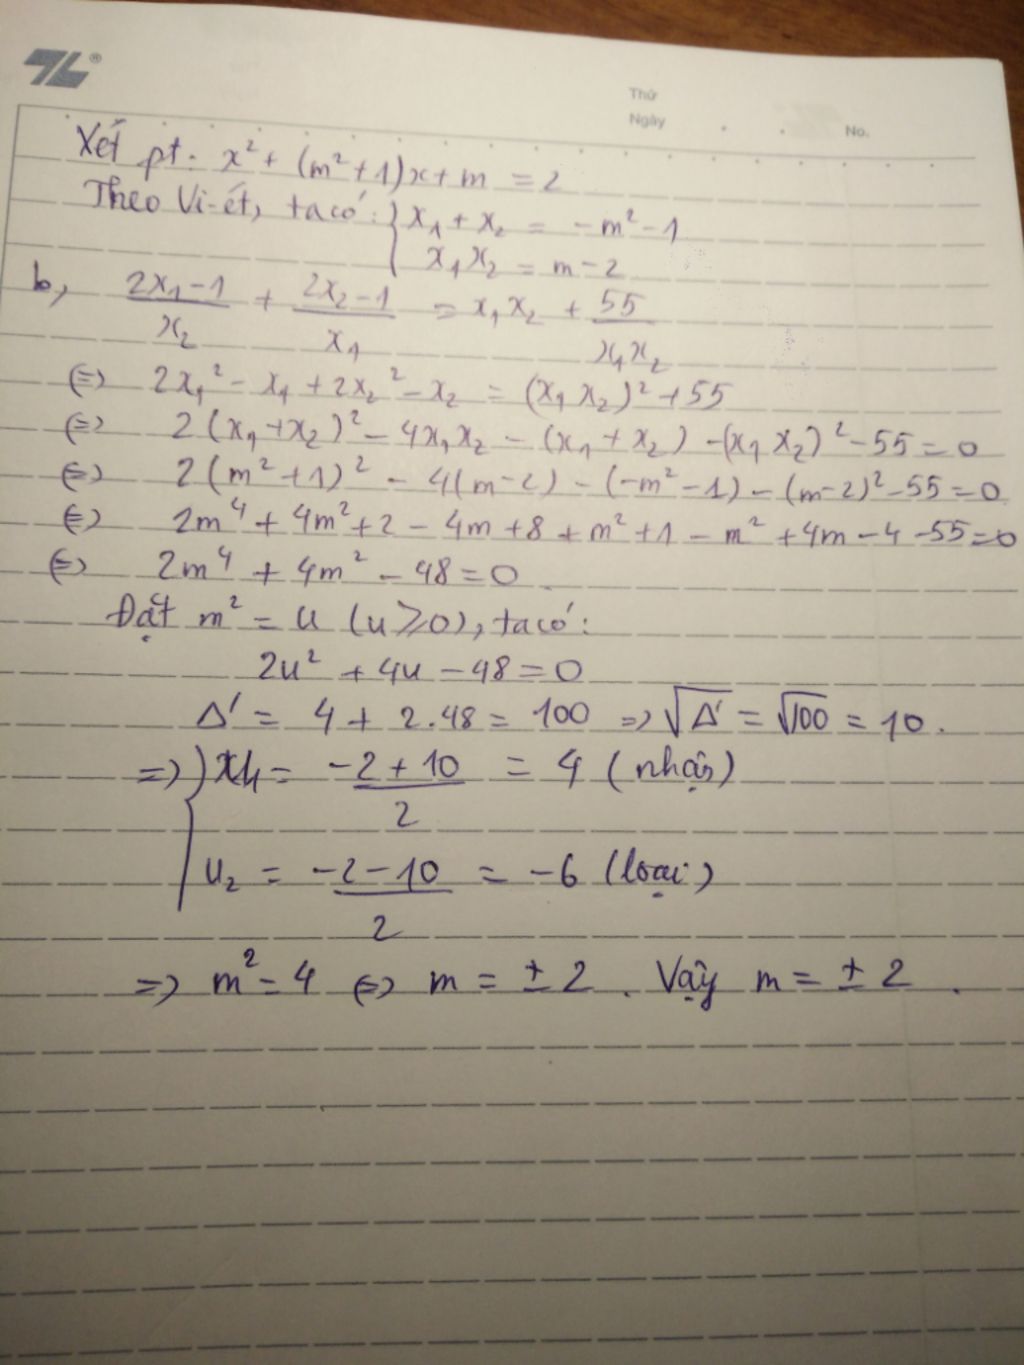 TL®
Thứ
Ngày . . No.
Xét pt. x² + (m² + 1)x + m = 2
Theo Vi-ét, ta có: { x₁ + x₂ = -m² - 1
x₁x₂ = m - 2
b, (2x₁ - 1)/x₂ + (2x₂ - 1)/x₁ = x₁x₂ + 55/(x₁x₂)
⇔ 2x₁² - x₁ + 2x₂² - x₂ = (x₁x₂)² + 55
⇔ 2(x₁ + x₂)² - 4x₁x₂ - (x₁ + x₂) - (x₁x₂)² - 55 = 0
⇔ 2(m² + 1)² - 4(m - 2) - (-m² - 1) - (m - 2)² - 55 = 0
⇔ 2m⁴ + 4m² + 2 - 4m + 8 + m² + 1 - m² + 4m - 4 - 55 = 0
⇔ 2m⁴ + 4m² - 48 = 0
Đặt m² = u (u ≥ 0), ta có:
2u² + 4u - 48 = 0
Δ' = 4 + 2.48 = 100 ⇒ √Δ' = √100 = 10.
⇒ { u₁ = (-2 + 10)/2 = 4 (nhận)
u₂ = (-2 - 10)/2 = -6 (loại)
⇒ m² = 4 ⇔ m = ± 2. Vậy m = ± 2.